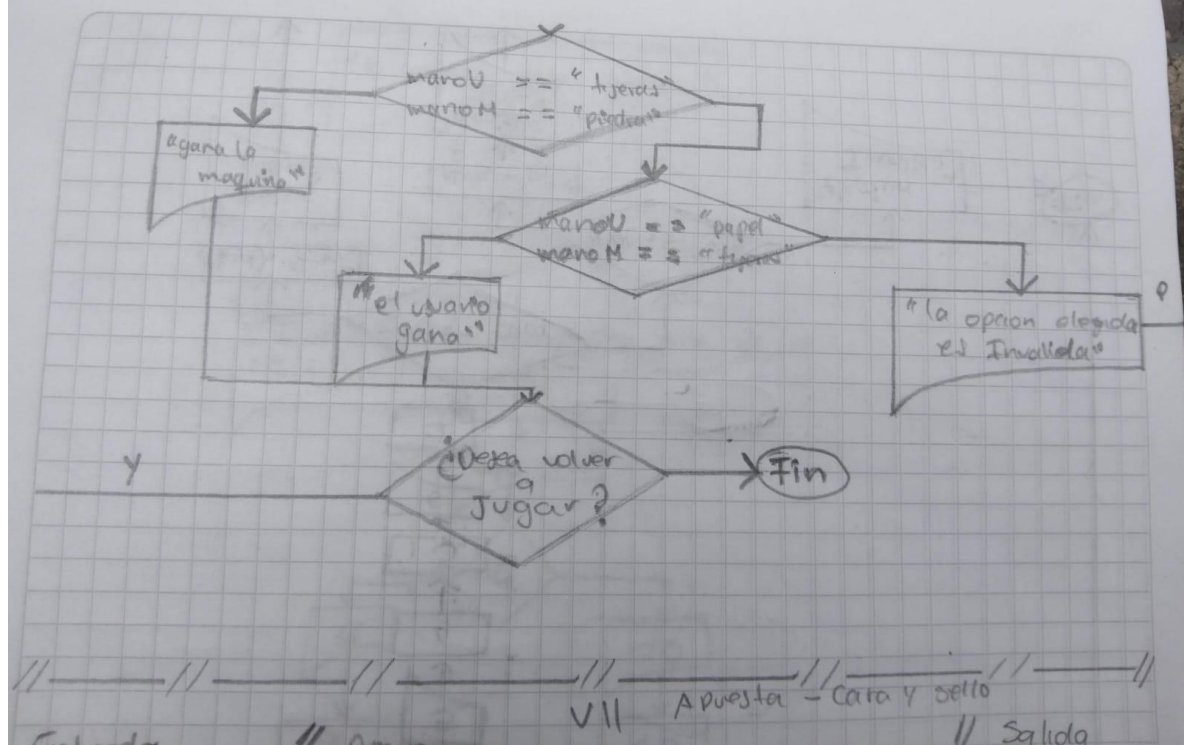 manoU == "tijeras"
manoM == "piedra"
"gana la
maquina"
manoU == "papel"
manoM == "tijeras"
"el usuario
gana"
"la opcion elegida
es Invalida"
P
Y
¿Desea volver
a
Jugar?
Fin
VII Apuesta - Cara y sello
// Salida